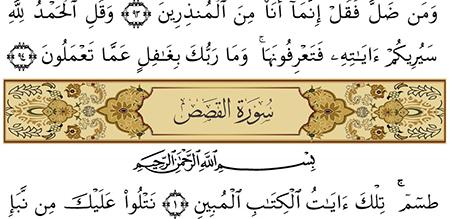 وَمَن ضَلَّ فَقُلْ إِنَّمَآ أَنَا۠ مِنَ ٱلْمُنذِرِينَ ﴿٩٣﴾ وَقُلِ ٱلْحَمْدُ لِلَّهِ
سَيُرِيكُمْ ءَايَـٰتِهِۦ فَتَعْرِفُونَهَا ۚ وَمَا رَبُّكَ بِغَـٰفِلٍ عَمَّا تَعْمَلُونَ ﴿٩٤﴾
سُورَةُ القَصَصِ
بِسْمِ ٱللَّهِ ٱلرَّحْمَـٰنِ ٱلرَّحِيمِ
طسٓمٓ ۚ تِلْكَ ءَايَـٰتُ ٱلْكِتَـٰبِ ٱلْمُبِينِ ﴿١﴾ نَتْلُوا۟ عَلَيْكَ مِن نَّبَإِ